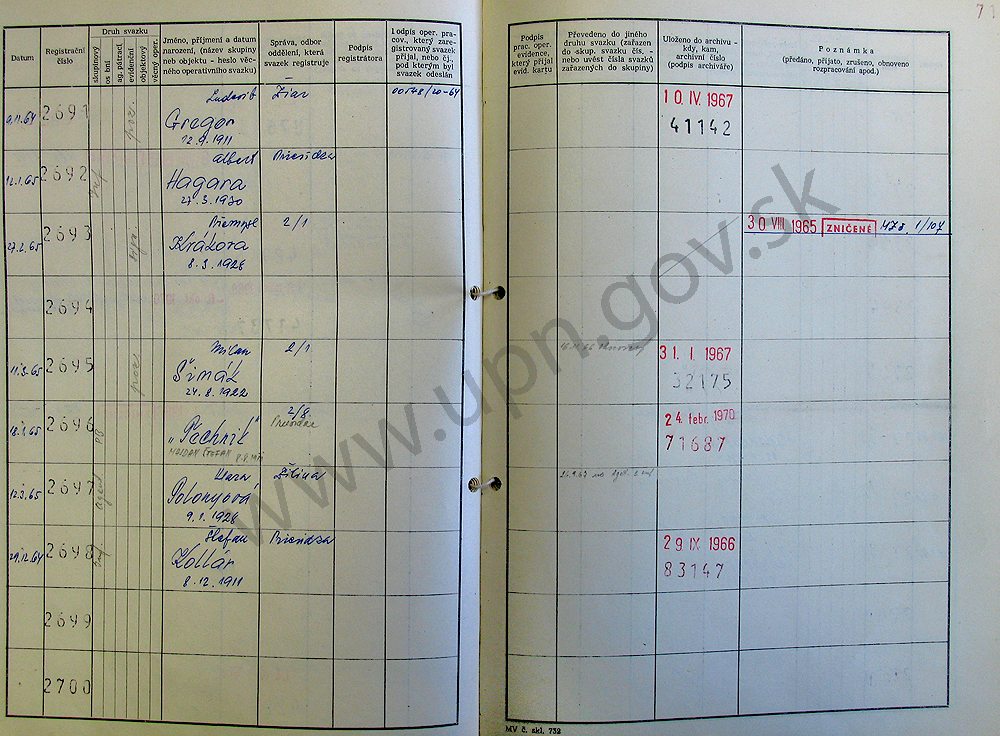 71
Datum
Registrační číslo
Druh svazku
skupinový
osobní
ag. pátrací
evidenční
objektový
věcný oper.
Jméno, příjmení a datum
narození, (název skupiny
neb objektu - heslo věc-
ného operativního svazku)
Správa, odbor
oddělení, která
svazek registruje
Podpis
registrátora
Podpis oper. pra-
cov., který zare-
gistrovaný svazek
přijal, nebo čj.,
pod kterým byl
svazek odeslán
Podpis
prac. oper.
evidence,
který přijal
evid. kartu
Převedeno do jiného
druhu svazku (zařazen
do skup. svazku čís. -
nebo uvést čísla svazků
zařazených do skupiny)
Uloženo do archivu -
kdy, kam,
archivní číslo
(podpis archiváře)
Poznámka
(předáno, přijato, zrušeno, obnoveno
rozpracování apod.)
9.11.64 2691 poz. Ludovít Žiar
Gregor
12.9.1911
10. IV. 1967
41142
12.1.65 2692 inf. Albert Prievidza
Hagara
27.3.1930
27.2.65 2693 Přemysl 2/1
8.3.1928
30 VIII 1965 ZNIČENÉ
2694
11.3.65 2695 poz. Milan 2/1
Šimák
24.8.1922
31. I. 1967
32175
2696 2/8
Prievidza
24. febr. 1970
71687
12.3.65 2697 agent Žilina
9.1.1928
29.12.64 2698 inf. Štefan Prievidza
Kollár
8.12.1911
29 IX 1966
83147
2699
2700
MV č. skl. 732
www.upn.gov.sk